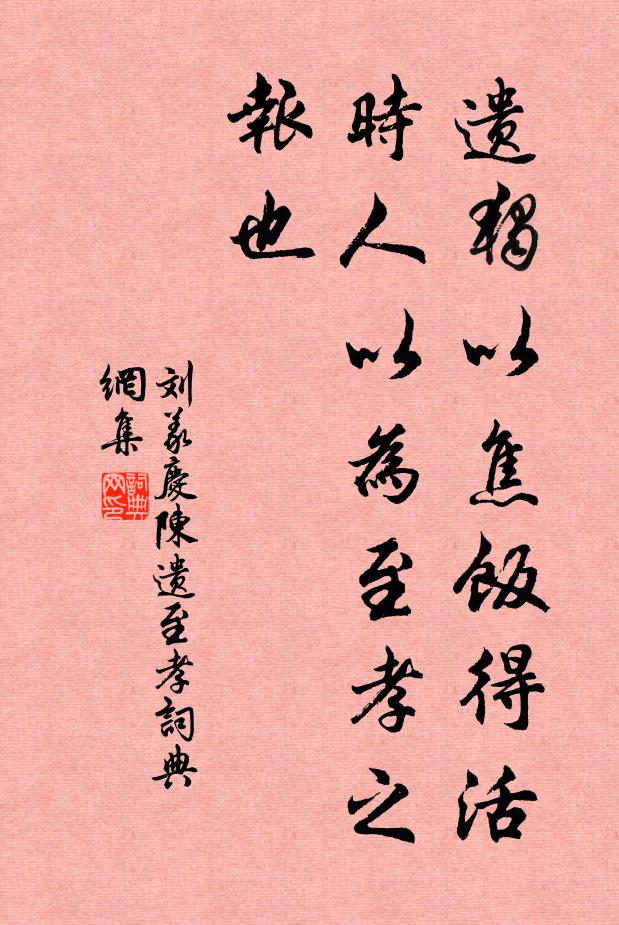 遗獨以焦飯得活
時人以為至孝之
報也
刘義慶陳遗至孝詞典
網集
詞典
网印